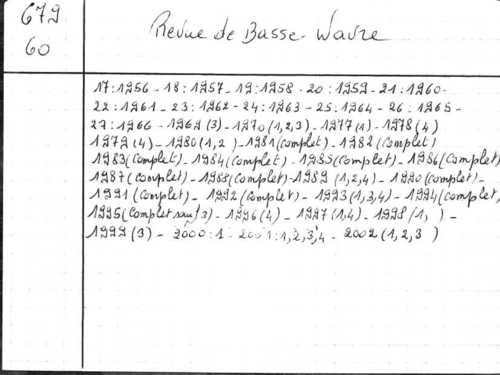 679
60
Revue de Basse-Wavre
17:1956 - 18:1957 - 19:1958 - 20:1959 - 21:1960 -
22:1961 - 23:1962 - 24:1963 - 25:1964 - 26:1965 -
27:1966 - 1969(3) - 1970(1,2,3) - 1977(1) - 1978(4)
1979(4) - 1980(1,2) - 1981(complet) - 1982(complet)
1983(complet) - 1984(complet) - 1985(complet) - 1986(complet)
1987(complet) - 1988(complet) - 1989(1,2,4) - 1990(complet) -
1991(complet) - 1992(complet) - 1993(1,3,4) - 1994(complet)
1995(complet sauf 3) - 1996(4) - 1997(1,4) - 1998(1, ) -
1999(3) - 2000:1 - 2001:1,2,3,4 - 2002(1,2,3 )